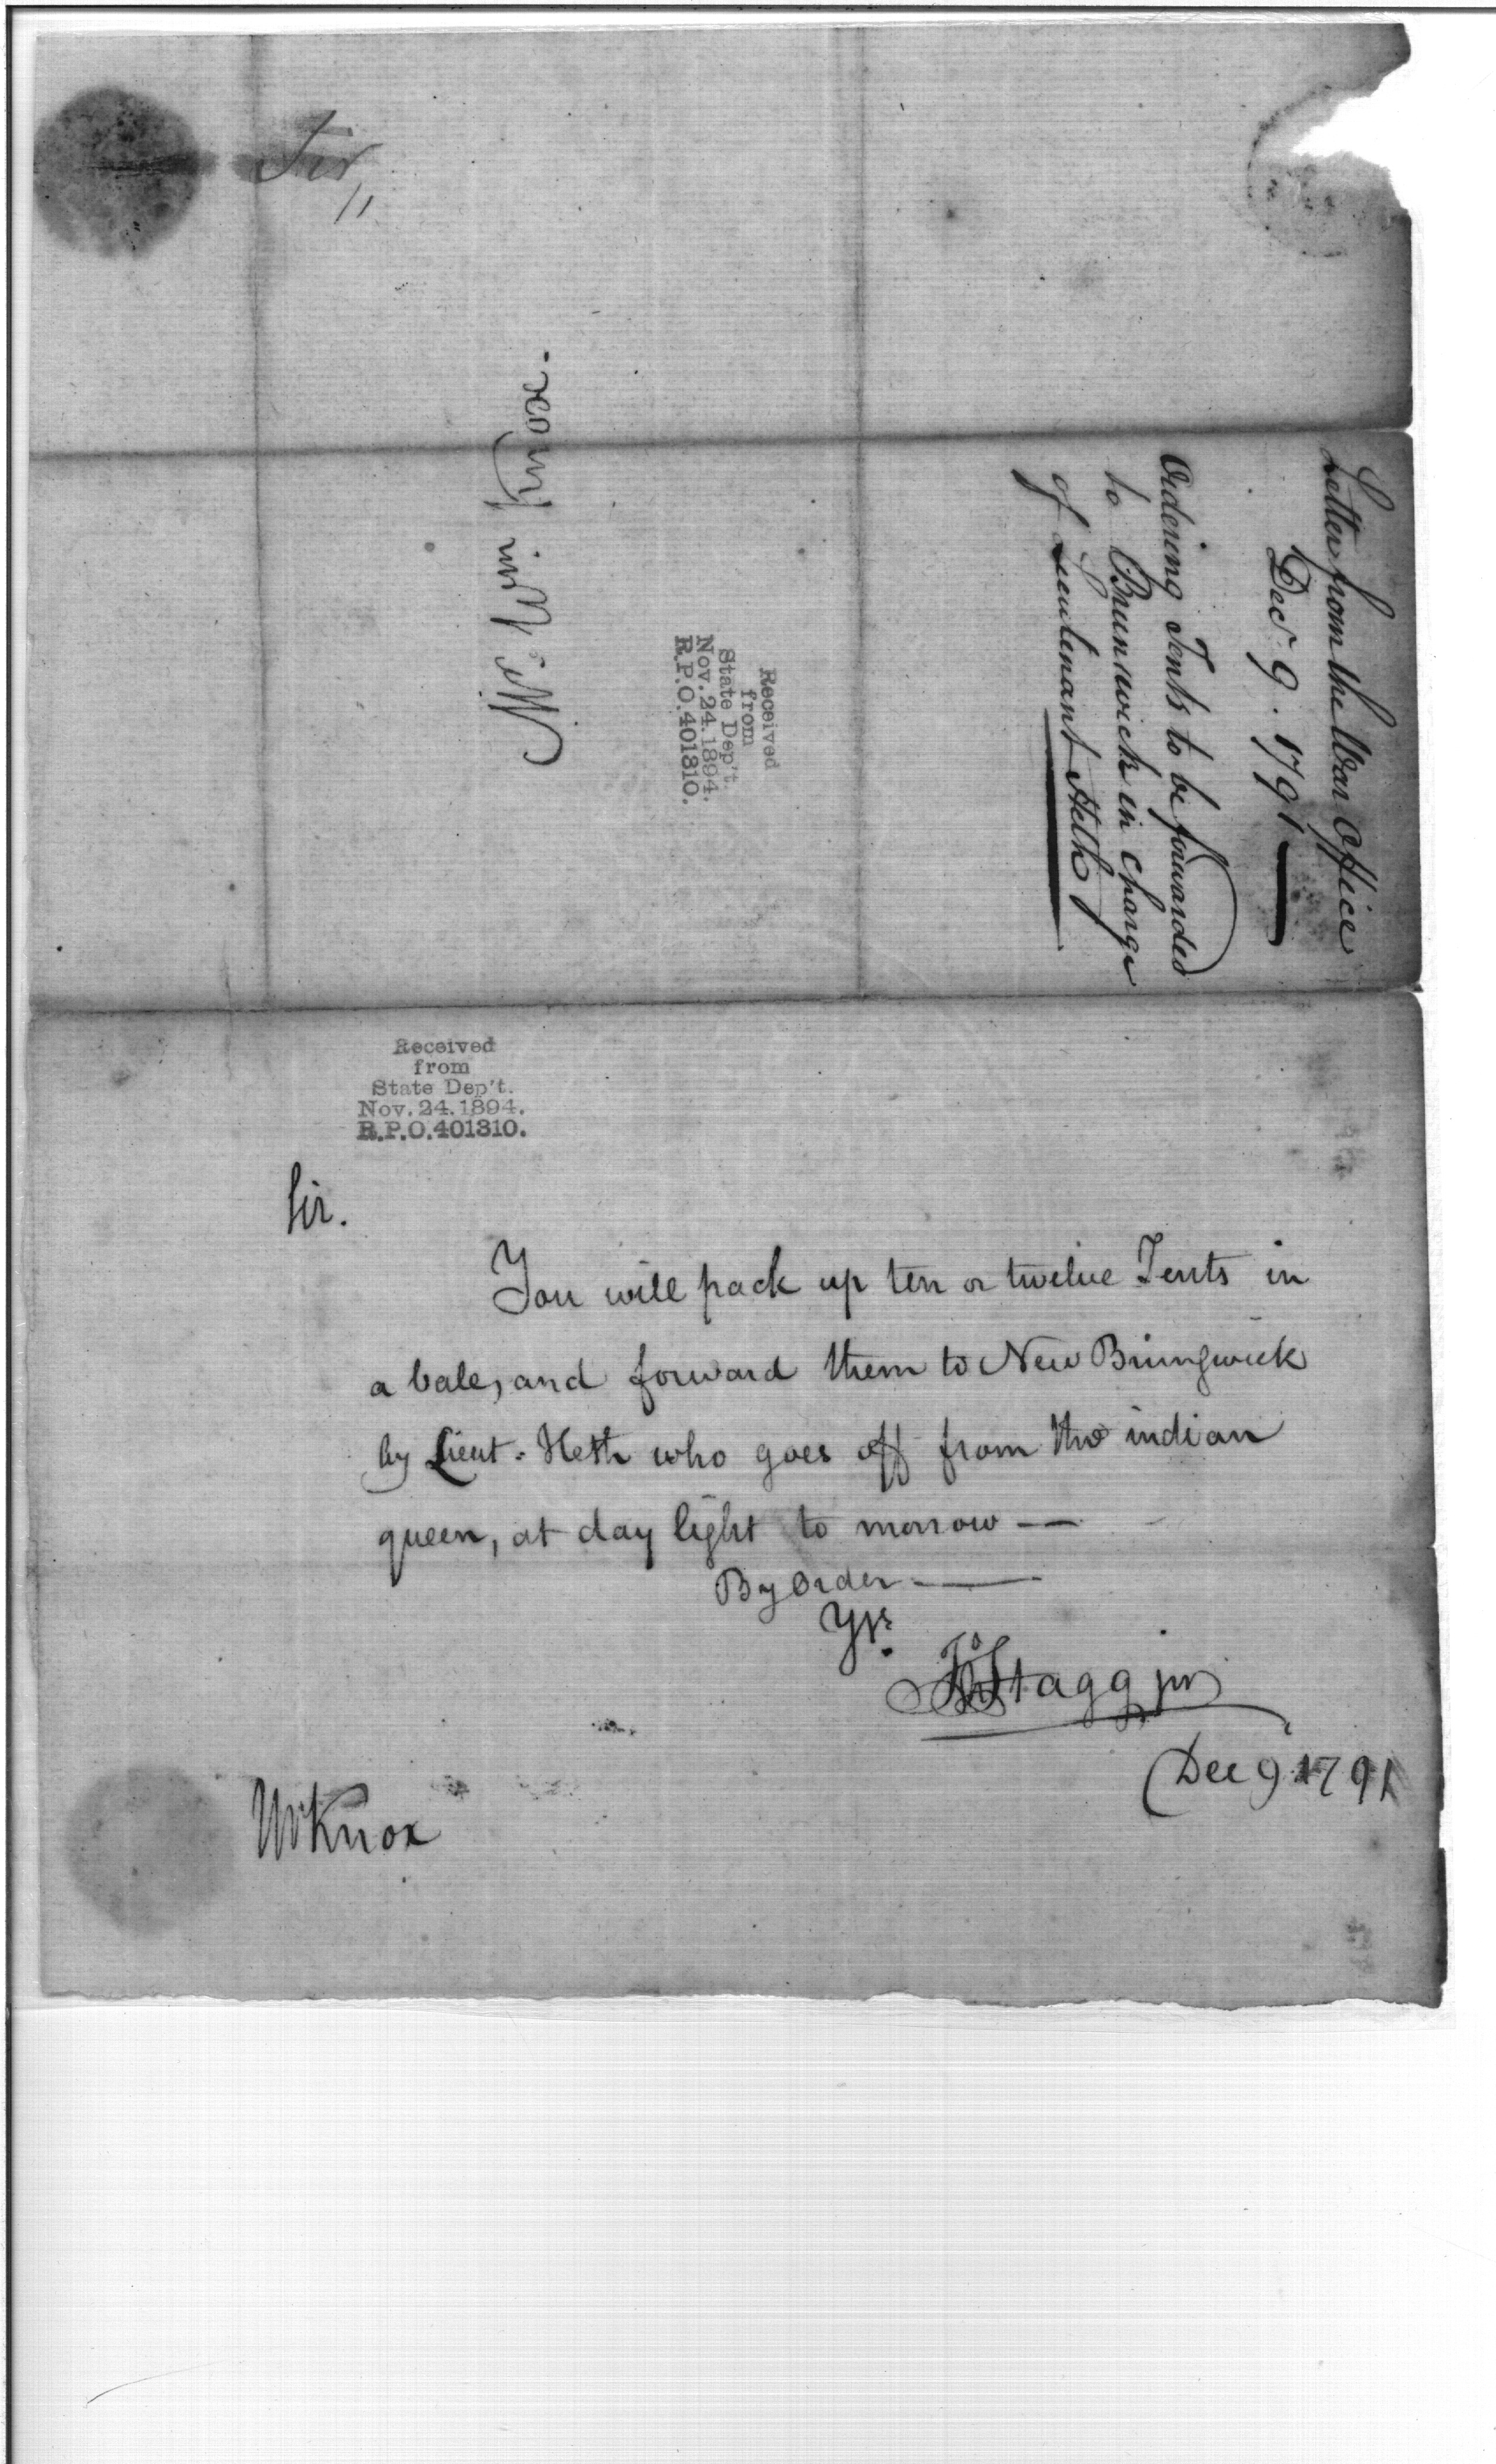 Sir
11
Mr. Wm Knox.
Received
from
State Dep't.
Nov. 24. 1894.
R.P.O. 401310.
Letter from the War Office
Decr. 9. 1791
Ordering Tents to be forwarded
to Brunswick in charge
of Lieutenant Heth
Received
from
State Dep't.
Nov. 24. 1894.
R.P.O. 401310.
Sir.
You will pack up ten or twelve Tents in
a bale, and forward them to New Brunswick
by Lieut: Heth who goes off from the indian
queen, at day light to morrow —
By Order —
Yrs.
Jno Stagg jnr
Dec 9 1791
Mr Knox